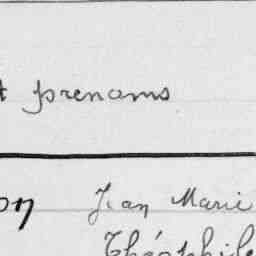 t prenoms
on Jean Marie
Théophile